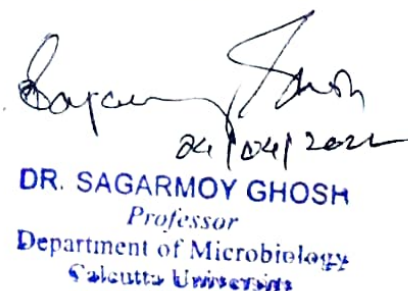 Sagarmoy Ghosh
04/04/2022
DR. SAGARMOY GHOSH
Professor
Department of Microbiology
Calcutta University